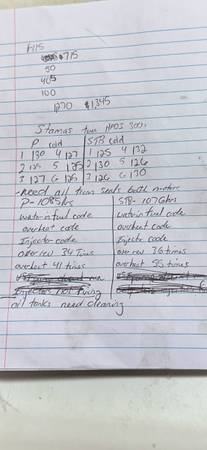 $775
50
405
100
1270 $1345
Stamas twin 300s
P cold STB cold
1 130 4 127 1 125 4 132
2 125 5 135 2 130 5 126
3 127 6 125 3 126 6 130
- need oil trans seals both motors
P- 1085hrs STB- 1076hrs
water in fuel code water in fuel code
overheat code overheat code
Injector code Injector code
over rev 34 Times over rev 36 times
overheat 41 times overheat 55 times
oil tanks need cleaning